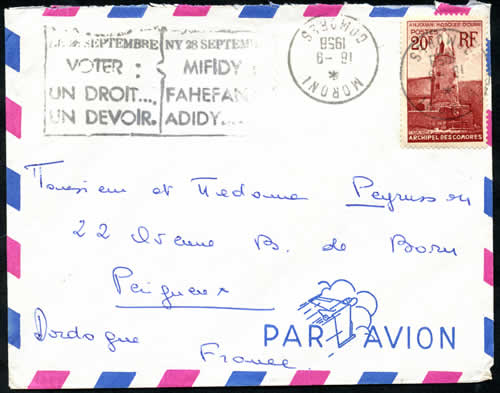 LE 28 SEPTEMBRE
VOTER :
UN DROIT....
UN DEVOIR.
NY 28 SEPTEM
MIFIDY :
FAHEFAN
ADIDY....
MORONI
18-9
1958
COMORES
ANJOUAN MOSQUÉE D'OUANI
POSTES
20F RF
ARCHIPEL DES COMORES
Monsieur et Madame
22 Avenue B. de Born
Périgueux
Dordogne
France
PAR AVION